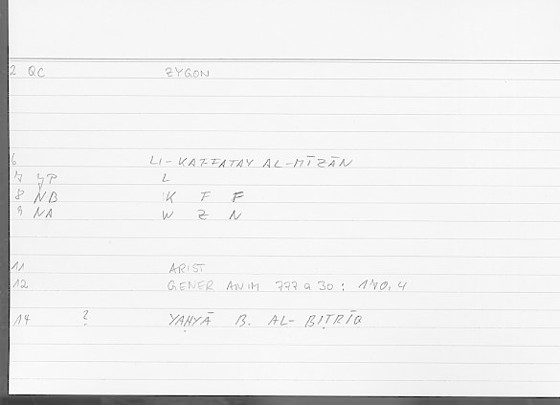 2 QC ZYGON
6 LI-KAFFATAY AL-MĪZĀN
7 JP L
8 NB K F F
9 NA W Z N
11 ARIST
12 GENER ANIM 777 a 30 : 170, 4
14 ? YAḤYĀ B. AL-BIṬRĪQ